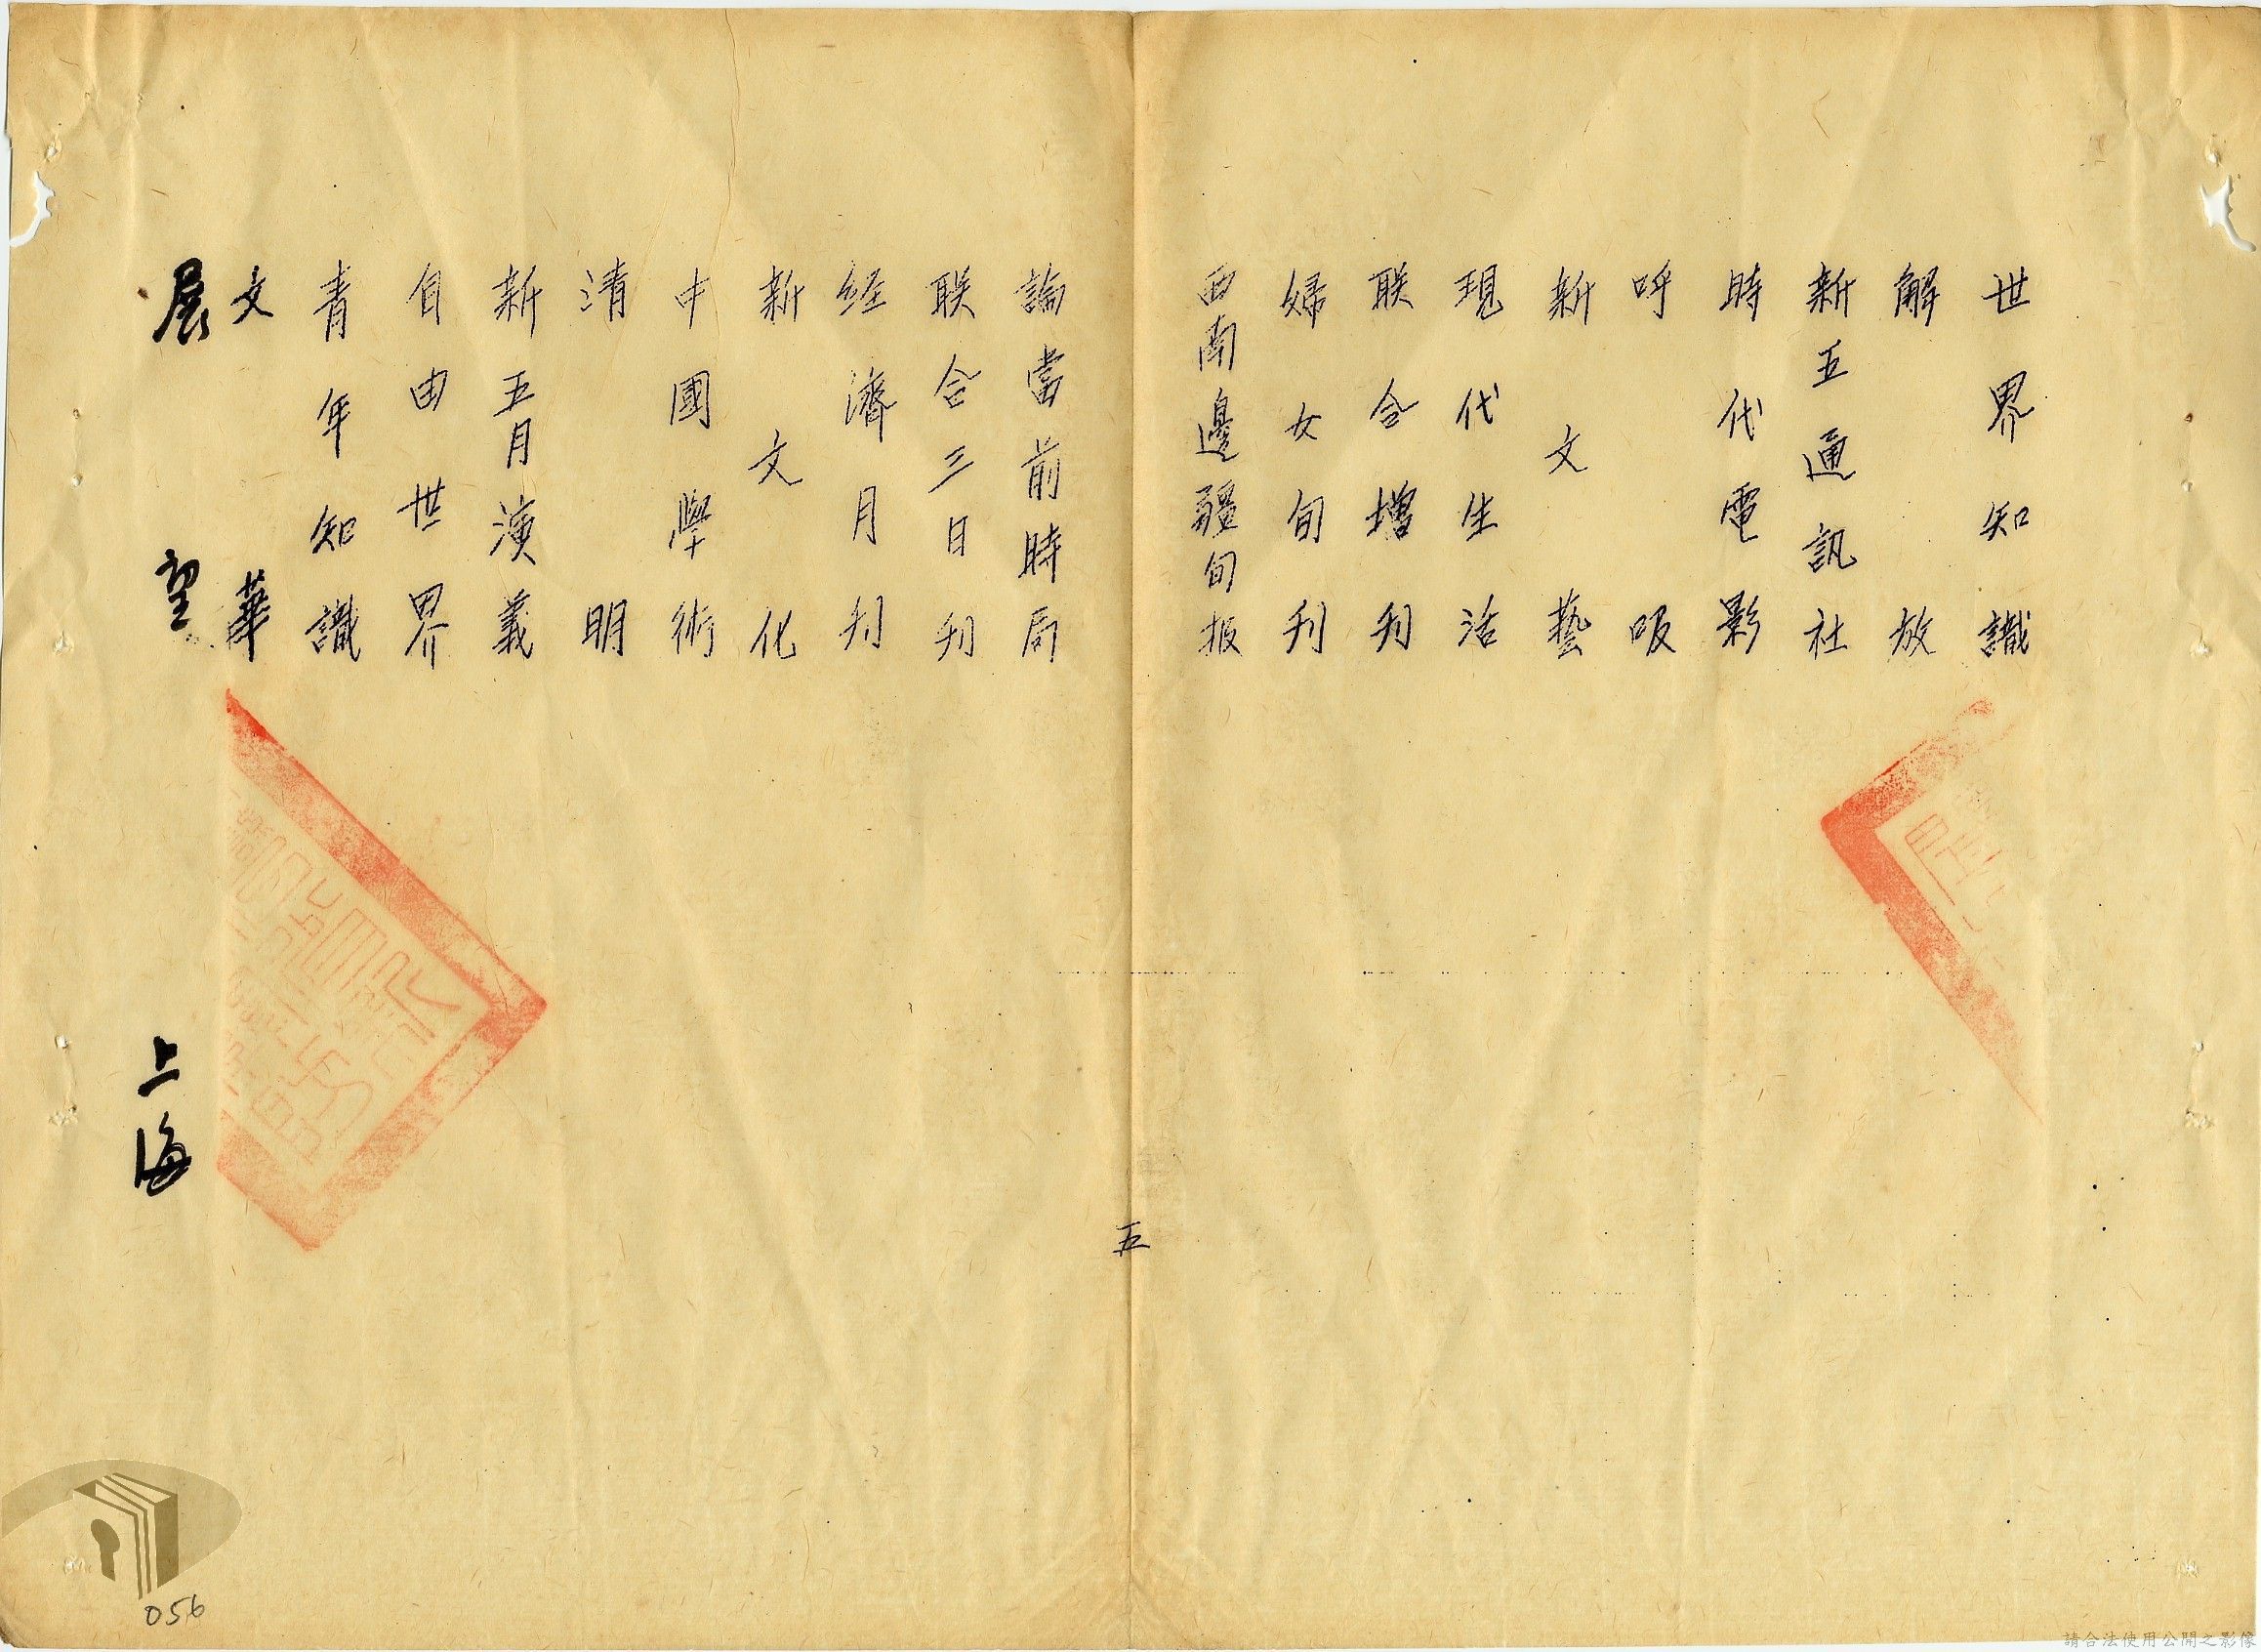 世界知識
解放
新五通訊社
時代電影
呼吸
新文藝
現代生活
联合增刋
婦女旬刋
西南邊疆旬报
五
論當前時局
联合三日刋
经濟月刋
新文化
中國學術
清明
新五月演義
自由世界
青年知識
文華
展望 上海
056
請合法使用公開之影像